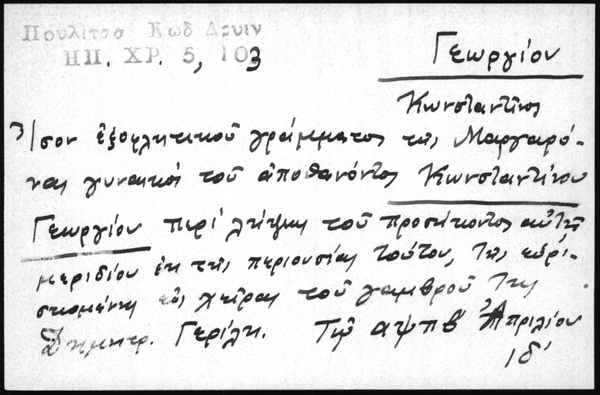 Πουλίτσα Κωδ Δρυιν
ΗΠ. ΧΡ. 5, 103
Γεωργίου
Κωνσταντῖνος
Ἴσον ἐξοφλητικοῦ γράμματος τῆς Μαργαρό-
νας γυναικός τοῦ ἀποθανόντος Κωνσταντίνου
Γεωργίου περί λήψης τοῦ προσήκοντος αὐτῇ
μεριδίου ἐκ τῆς περιουσίας τούτου, τῆς εὑρι-
σκομένης εἰς χεῖρας τοῦ γαμβροῦ της
Δημητρ. Γερίλη. Τῷ αψπβ' Ἀπριλίου
ιδ'